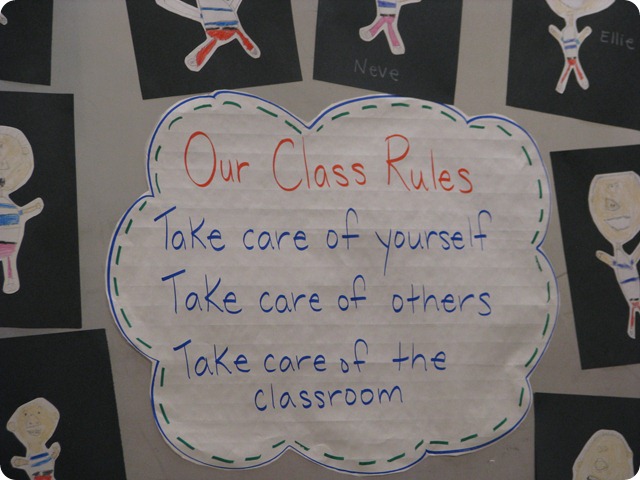 Neve
Ellie
Our Class Rules
Take care of yourself
Take care of others
Take care of the
classroom